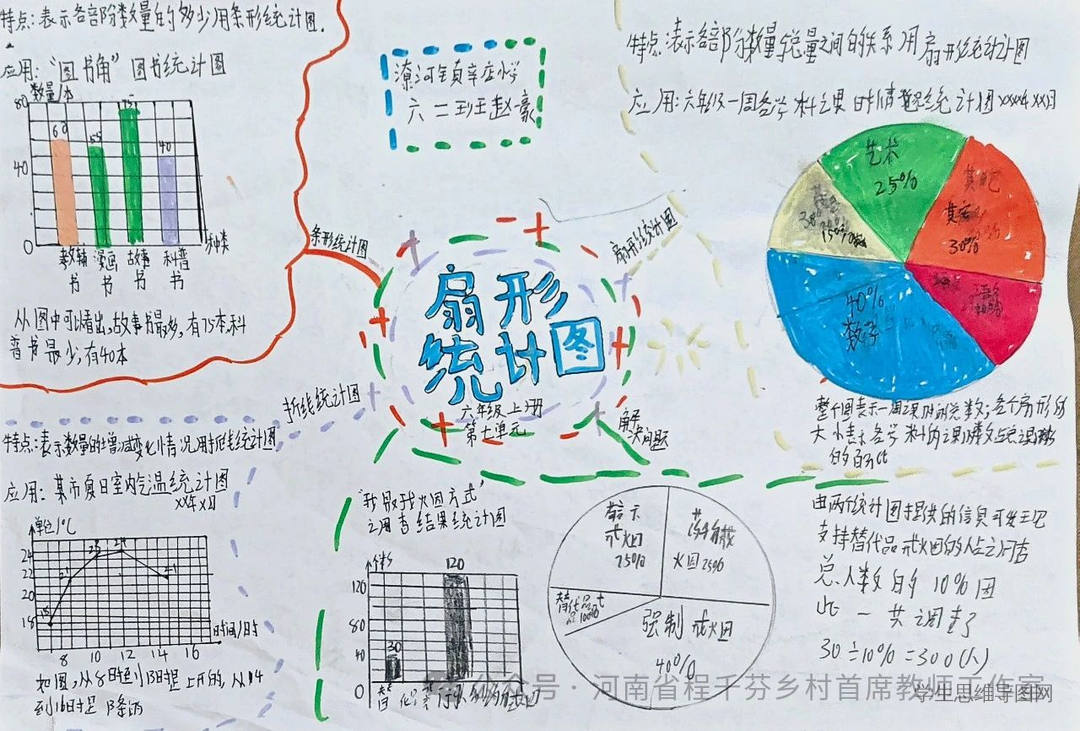 特点:表示各部分数量的多少用条形统计图.
应用:"图书角"图书统计图
数量/本
80
40
0
60
55
75
40
种类
教辅书
漫画书
故事书
科普书
从图中可以看出,故事书最多,有75本,科
普书最少,有40本
六二班王赵豪
特点:表示各部分数量与总量之间的关系用扇形统计图
应用:六年级一周各学科课时情况统计图xx年xx月
艺术
25%
其它
30%
15%
40%
数学
条形统计图
扇形统计图
折线统计图
解决问题
扇形
统计图
六年级上册
第七单元
整个圆表示一周课时的总数,各个扇形的
大小表示各学科的课时数占总课时数
的百分比
特点:表示数量的增减变化情况用折线统计图
应用:某市夏日室内气温统计图
xx年x月
单位/℃
24
22
20
18
8 10 12 14 16
时间/时
到16时是下降的
"我 戒烟方式"
调查结果统计图
人数
120
80
40
0
30
120
警示
戒烟
25%
戒烟25%
替代品
10%
强制戒烟
40%
由两个统计图提供的信息可发现
支持替代品戒烟的人占调查
总人数的10%因
此一共调查了
30÷10%=300(人)
公众号·河南省程千芬乡村首席教师工作室
学生思维导图网